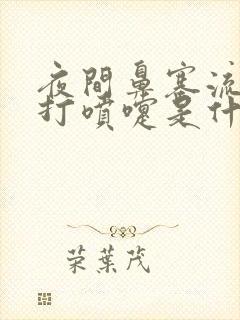 夜間鼻塞流
打噴嚏是什
荣葉茂